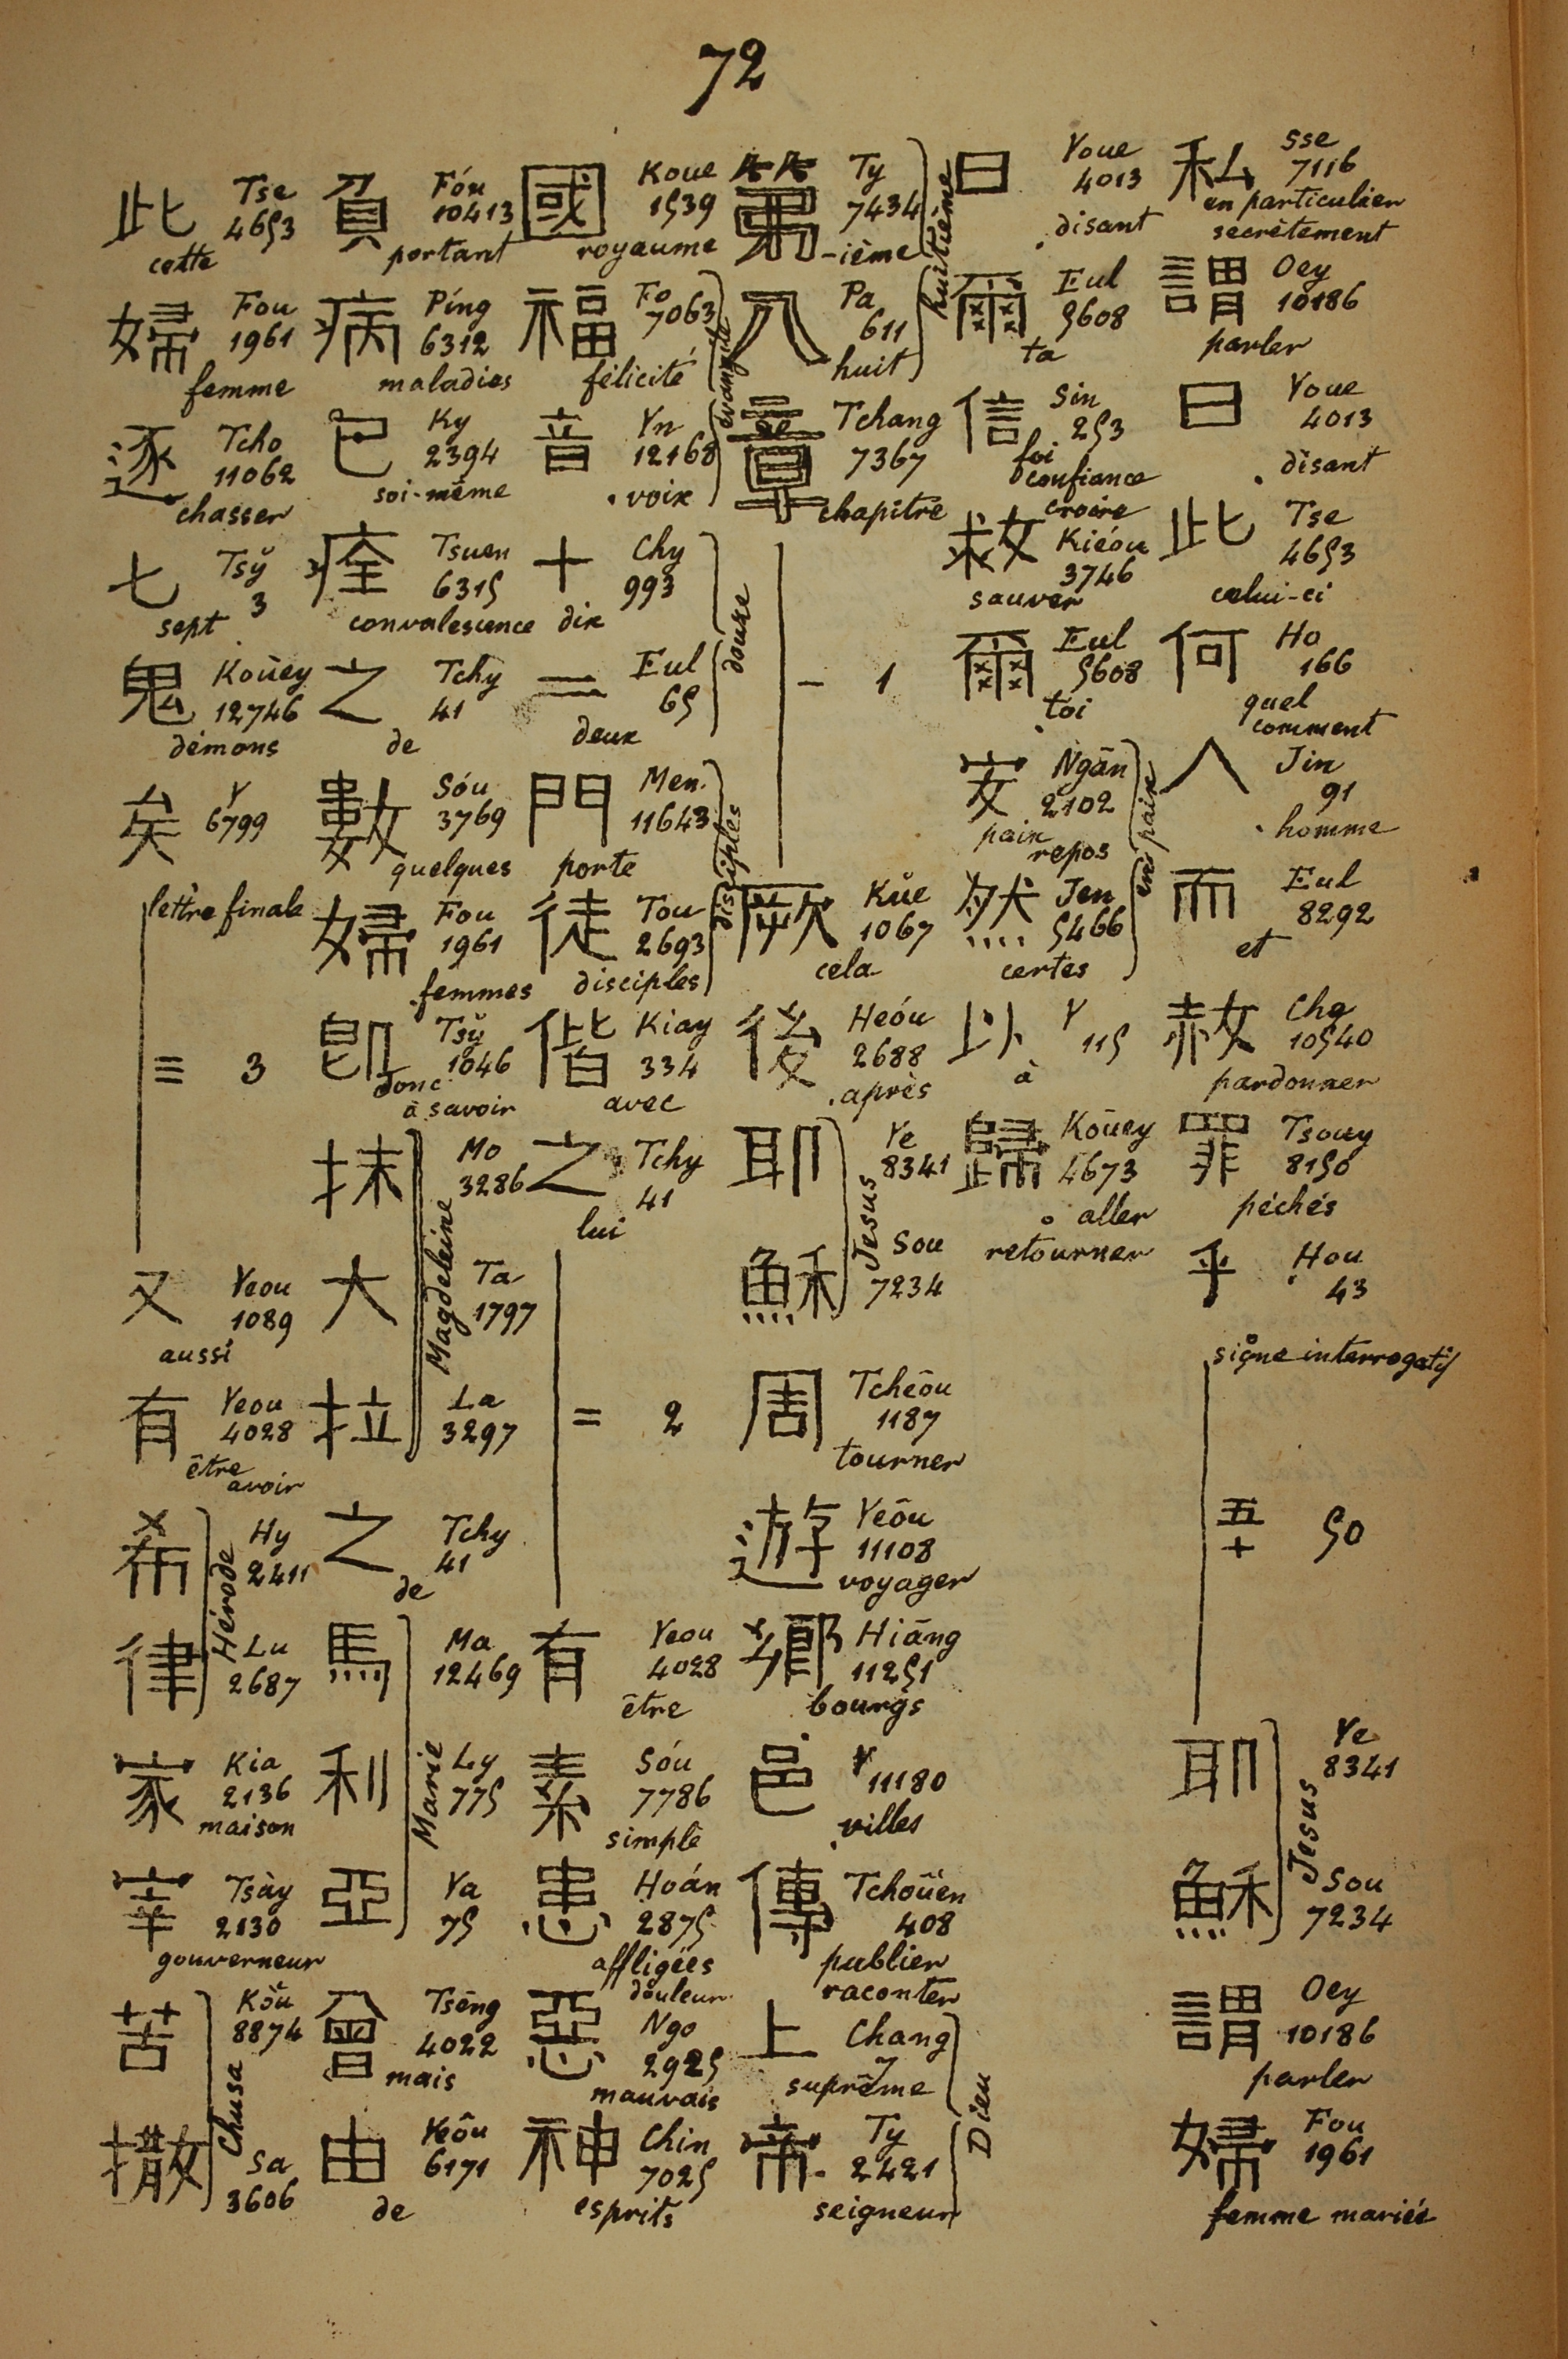 72
私 Sse
7116
en particulier
secrètement
謂 Oey
10186
parler
曰 Youe
4013
disant
此 Tse
4653
celui-ci
何 Ho
166
quel
comment
人 Jin
91
homme
而 Eul
8292
et
赦 Che
10540
pardonner
罪 Tsouy
8150
péchés
乎 Hou
43
signe interrogatif
五十 50
耶 Ye
8341
Jesus
穌 Sou
7234
謂 Oey
10186
parler
婦 Fou
1961
femme mariée
曰 Youe
4013
disant
爾 Eul
5608
ta
信 Sin
253
foi
confiance
croire
救 Kiéou
3746
sauver
爾 Eul
5608
toi
安 Ngān
2102
paix
repos
en paix
然 Jen
5466
certes
以 Y
115
à
歸 Kōuey
4673
aller
retourner
第 Ty
7434
-ième
huitième
八 Pa
611
huit
章 Tchang
7367
chapitre
一 1
厥 Kŭe
1067
cela
後 Heóu
2688
après
耶 Ye
8341
Jesus
穌 Sou
7234
周 Tcheōu
1187
tourner
遊 Yeôu
11108
voyager
鄉 Hiāng
11251
bourgs
邑 Y
11180
villes
傳 Tchoûen
408
publier
raconter
上 Chang
7
suprême
Dieu
帝 Ty
2421
seigneur
國 Koue
1539
royaume
福 Fo
7063
félicité
évangile
音 Yn
12168
voix
十 Chy
993
dix
douze
二 Eul
65
deux
門 Men
11643
porte
disciples
徒 Tou
2693
disciples
偕 Kiay
334
avec
之 Tchy
41
lui
二 2
有 Yeou
4028
être
素 Sóu
7786
simple
患 Hoán
2875
affligées
douleur
惡 Ngo
2925
mauvais
神 Chin
7025
esprits
負 Fóu
10413
portant
病 Píng
6312
maladies
己 Ky
2394
soi-même
痊 Tsuen
6315
convalescence
之 Tchy
41
de
數 Sóu
3769
quelques
婦 Fou
1961
femmes
卽 Tsў
1046
donc
à savoir
抹 Mo
3286
Magdeleine
大 Ta
1797
拉 La
3297
之 Tchy
41
de
馬 Ma
12469
Marie
利 Ly
775
亞 Ya
75
曾 Tsēng
4022
mais
由 Yeôu
6171
de
此 Tse
4653
cette
婦 Fou
1961
femme
逐 Tcho
11062
chasser
七 Tsў
3
sept
鬼 Koùey
12746
démons
矣 Y
6799
lettre finale
三 3
又 Yeou
1089
aussi
有 Yeou
4028
être
avoir
希 Hy
2411
Hérode
律 Lu
2687
家 Kia
2136
maison
宰 Tsày
2130
gouverneur
苦 Kòu
8874
Chusa
撒 Sa
3606